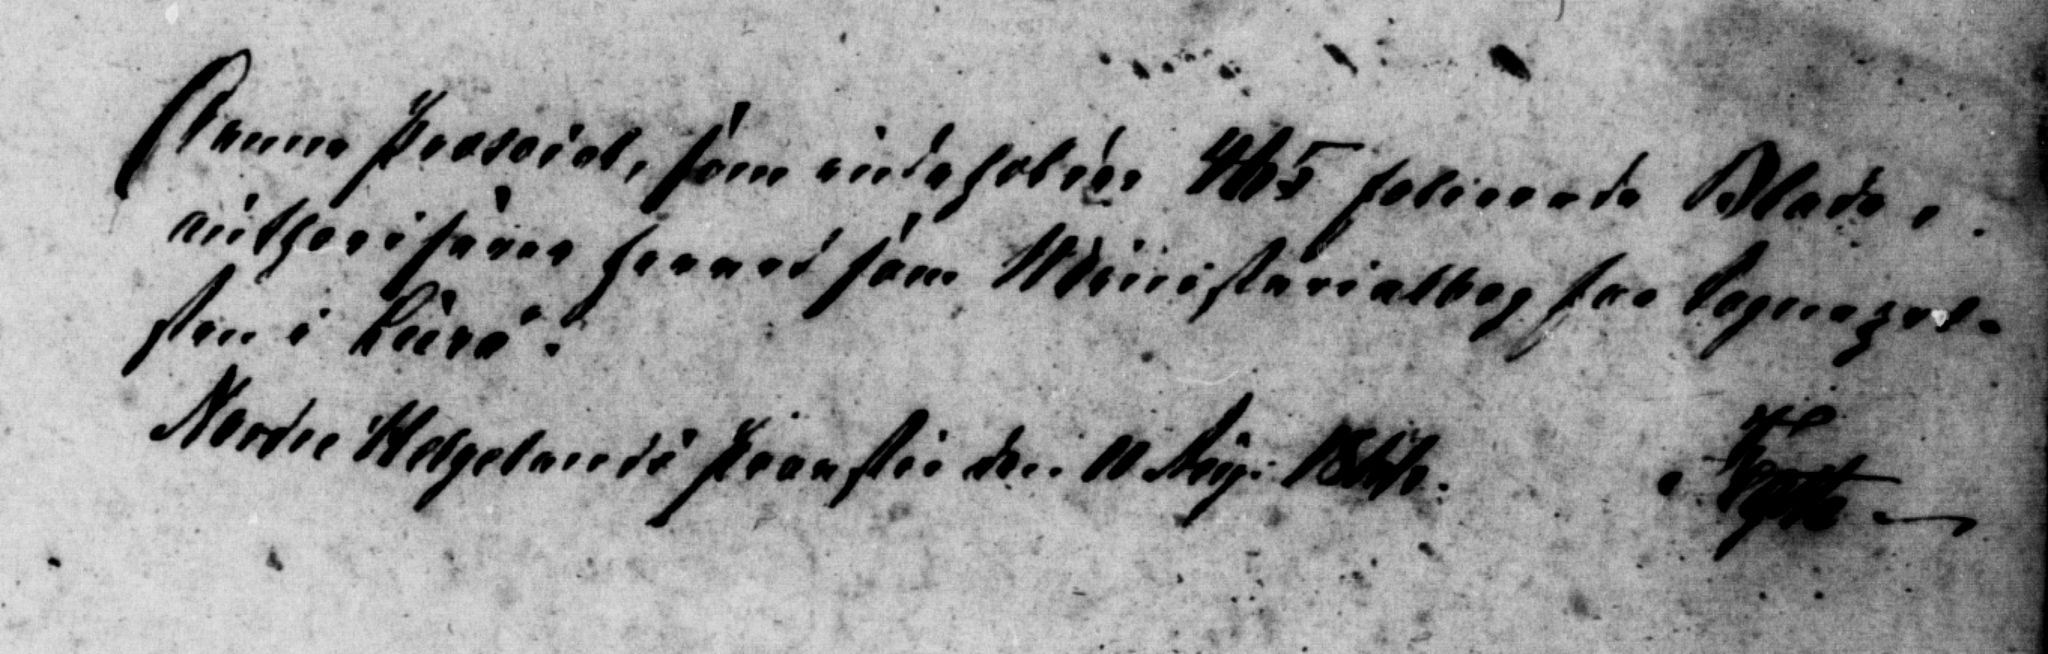 Denne Protocol, som indeholder 465 folierede Blade,
authoriseres herved som Ministerialbog for Sognepræ-
sten i Lurø.
Nordre Helgelands Provstie den 10 1844.